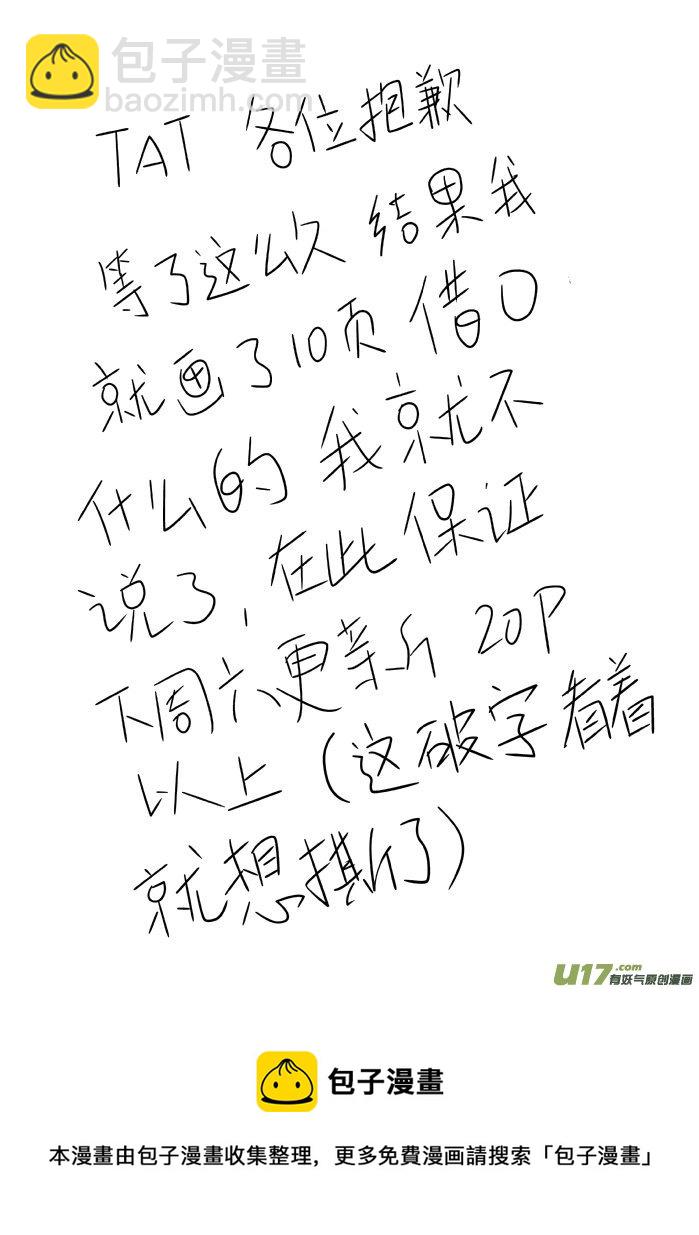 包子漫畫
baozimh.com
TAT 各位抱歉
等了这么久 结果我
就画了10页 借口
什么的 我就不
说了, 在此保证
下周六更新 20P
以上 (这破字看着
就想撕了)
U17.com
有妖气原创漫画
包子漫畫
本漫畫由包子漫畫收集整理,更多免費漫画請搜索「包子漫畫」